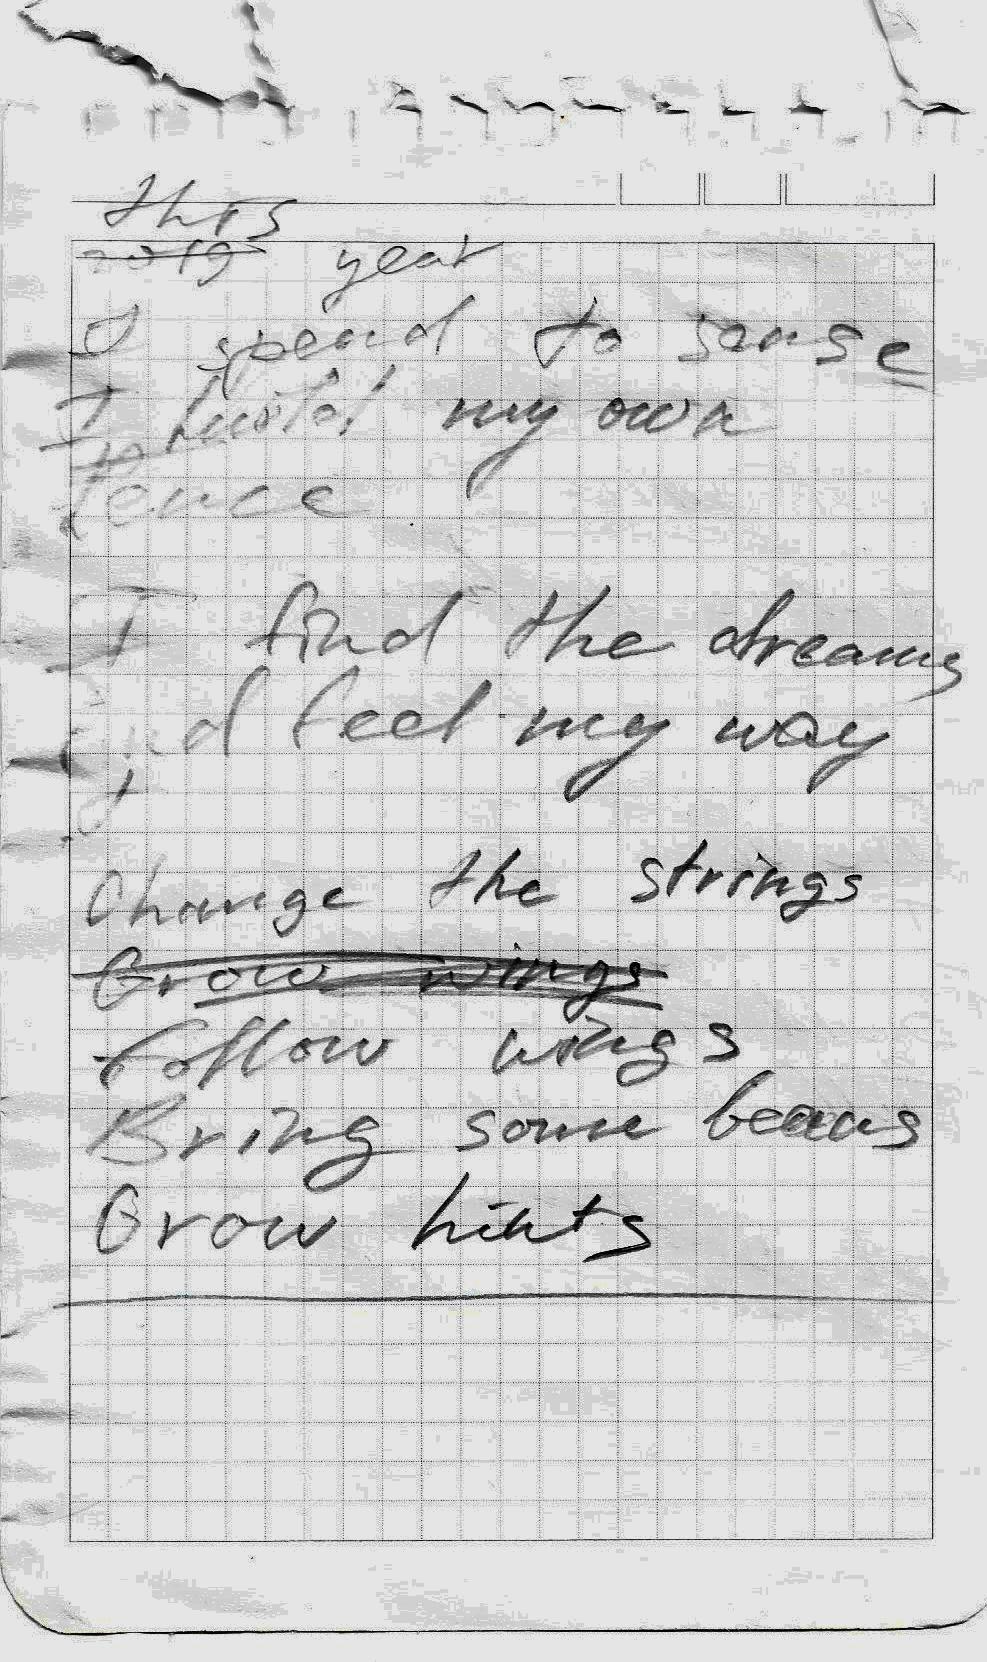 this
2019 year
I spend to sense
I build my own
fence
I find the dreams
and feel my way
Change the strings
Grow wings
Follow wings
Bring some beams
Grow hints